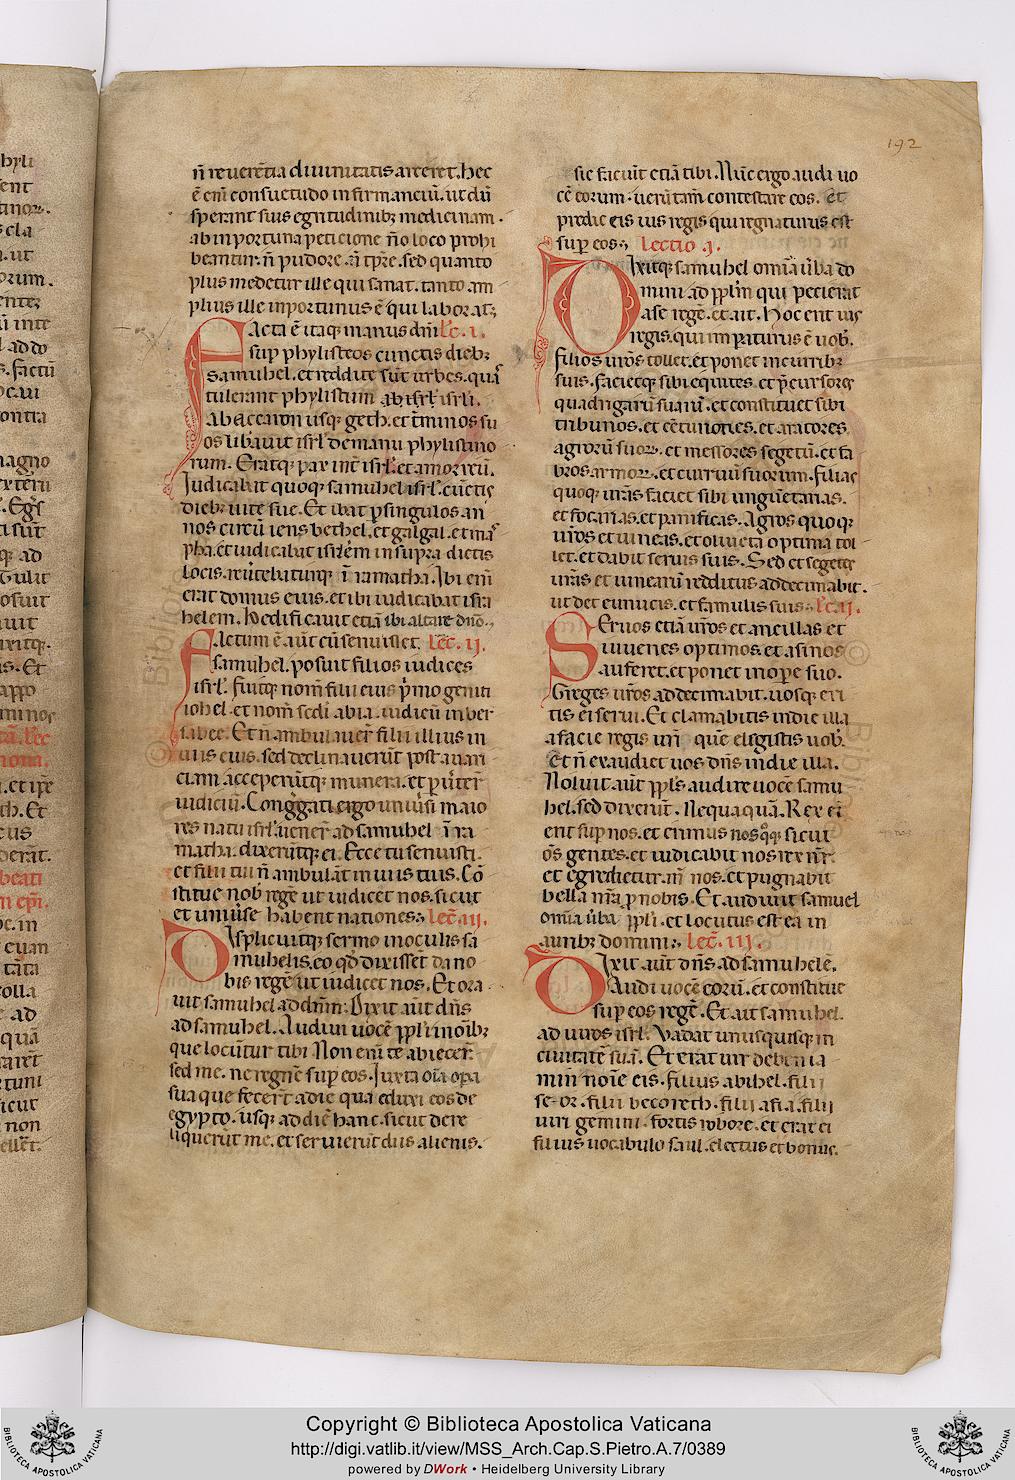 192
n̄ reuerētia diuinitatis arceret. hec
ē em̄ consuetudo infirmanciū. ut dū
sperant suis egritudinibꝫ medicinam.
ab inportuna peticione n̄o loco prohi
beantur. n̄ pudore. n̄ tp̄re. sed quanto
plus medetur ille qui sanat. tanto am
plius ille inportunus ē qui laborat;
Facta ē itaqꝫ manus dn̄i Lc̄. i.
sup̄ phylisteos cunctis diebꝫ
samuhel. et reddite sūt urbes. quas
tulerant phylistiim ab isrl̄ isrl̄i.
Ab accaron usqꝫ geth. et t̄minos su
os lib̄auit isrl̄ de manu phylistino
rum. Eratqꝫ pax int̄ isrl̄ et amorreū.
Iudicabat quoqꝫ samuhel isrl̄. cūctis
diebꝫ uite sue. Et ibat p̱ singulos an
nos circū iens bethel. et galgal. et mas
pha. et iudicabat isrl̄em in supra dictis
locis. reūtebaturqꝫ ī ramatha. Ibi em̄
erat domus eius. et ibi iudicabat isra
helem. Hedificauit etiā ibi altare dn̄o.
Factum ē aūt cū senuisset. Lec̄. ii.
samuhel. posuit filios iudices
isrl̄. fuitqꝫ nom̄ filii eius p̄mo geniti
iohel. et nom̄ sc̄di abia. iudicū in ber
sabee. Et n̄ ambulauer̄ filii illius in
uiis eius. sed declinauerūt post auari
ciam. acceperūtqꝫ munera. et p̱ūter̄
iudiciū. Congḡati ergo uniūsi maio
res natu isrl̄. uener̄ ad samuhel ī ra
matha. dixerūtqꝫ ei. Ecce tu senuisti.
et filii tui n̄ ambulāt in uiis tuis. Cō
stitue nob̄ regē ut iudicet nos. sicut
et uniūse habent nationes; Lec̄. iii.
Displicuitqꝫ sermo in oculis sa
muhelis. eo qd̄ dixissēt da no
bis regē ut iudicet nos. Et ora
uit samuhel ad dn̄m. Dixit aūt dn̄s
ad samuhel. Audi uocē ppl̄i in oīb;
que locūtur tibi Non eni te abiecer̄.
sed me. ne regnē sup̄ eos. Iuxta oīa opa
sua que fecer̄t a die qua eduxi eos de
egypto. usqꝫ ad diē hanc. sicut dere
liquerūt me. et seruierūt diis alienis.
sic faciūt etiā tibi. Nūc ergo audi uo
cē eorum. uerūtam̄ contestare eos. et
predic eis ius regis qui regnaturus est
sup̄ eos; Lectio .i.
Dixitqꝫ samuhel omīa ūba do
mini ad ppl̄m qui pecierat
a se regē. et ait. Hoc erit ius
regis. qui imp̱aturus ē uob̄.
filios ūros tollet. et ponet in currib;
suis. facietqꝫ sibi equites. et p̄cursores
quadrigarū suarū. et constituet sibi
tribunos. et cēturiones. et aratores
agrorū suoꝝ. et messores segetū. et fa
bros armoꝝ. et curruū suorum. Filias
quoqꝫ ūras faciet sibi unguētarias.
et focarias. et panificas. Agros quoqꝫ
ūros et uineas. et oliueta optima tol
let. et dabit seruis suis. Sed et segetes
ūras et uinearū redditus addecimabit.
ut det eunucis. et famulis suis; Lc̄. ii.
Seruos etiā ūros et ancillas et
iuuenes optimos. et asinos
auferet. et ponet in op̱e suo.
Greges ūros addecimabit. uosqꝫ eri
tis ei serui. Et clamabitis in die illa
a facie regis ur̄i quē elegistis uob̄.
Et n̄ exaudiet uos dn̄s in die illa.
Noluit aūt ppl̄s audire uocē samu
hel. sed dixerūt. Nequaquā. Rex eī
erit sup̄ nos. et erimus nos qoqꝫ sicut
om̄s gentes. et iudicabit nos rex nr̄.
et egredietur. ān nos. et pugnabit
bella nr̄a p̱ nobis. Et audiuit samuel
omīa ūba ppl̄i. et locutus est ea in
auribꝫ domini; Lec̄. iii.
Dixit aūt dn̄s ad samuhelē.
Audi uocē eorū. et constitue
sup̄ eos regē. Et ait samuhel.
ad uiros isrl̄. Vadat unusquisqꝫ in
ciuitatē suā. Et erat uir de benia
min noīe cis. filius abihel. filii
se-or. filii becoreth. filii afia. filii
uiri gemini. fortis robore. et erat ei
filius uocabulo saul. electus et bonus.
Copyright © Biblioteca Apostolica Vaticana
http://digi.vatlib.it/view/MSS_Arch.Cap.S.Pietro.A.7/0389
powered by DWork • Heidelberg University Library
BIBLIOTECA APOSTOLICA VATICANA
BIBLIOTECA APOSTOLICA VATICANA